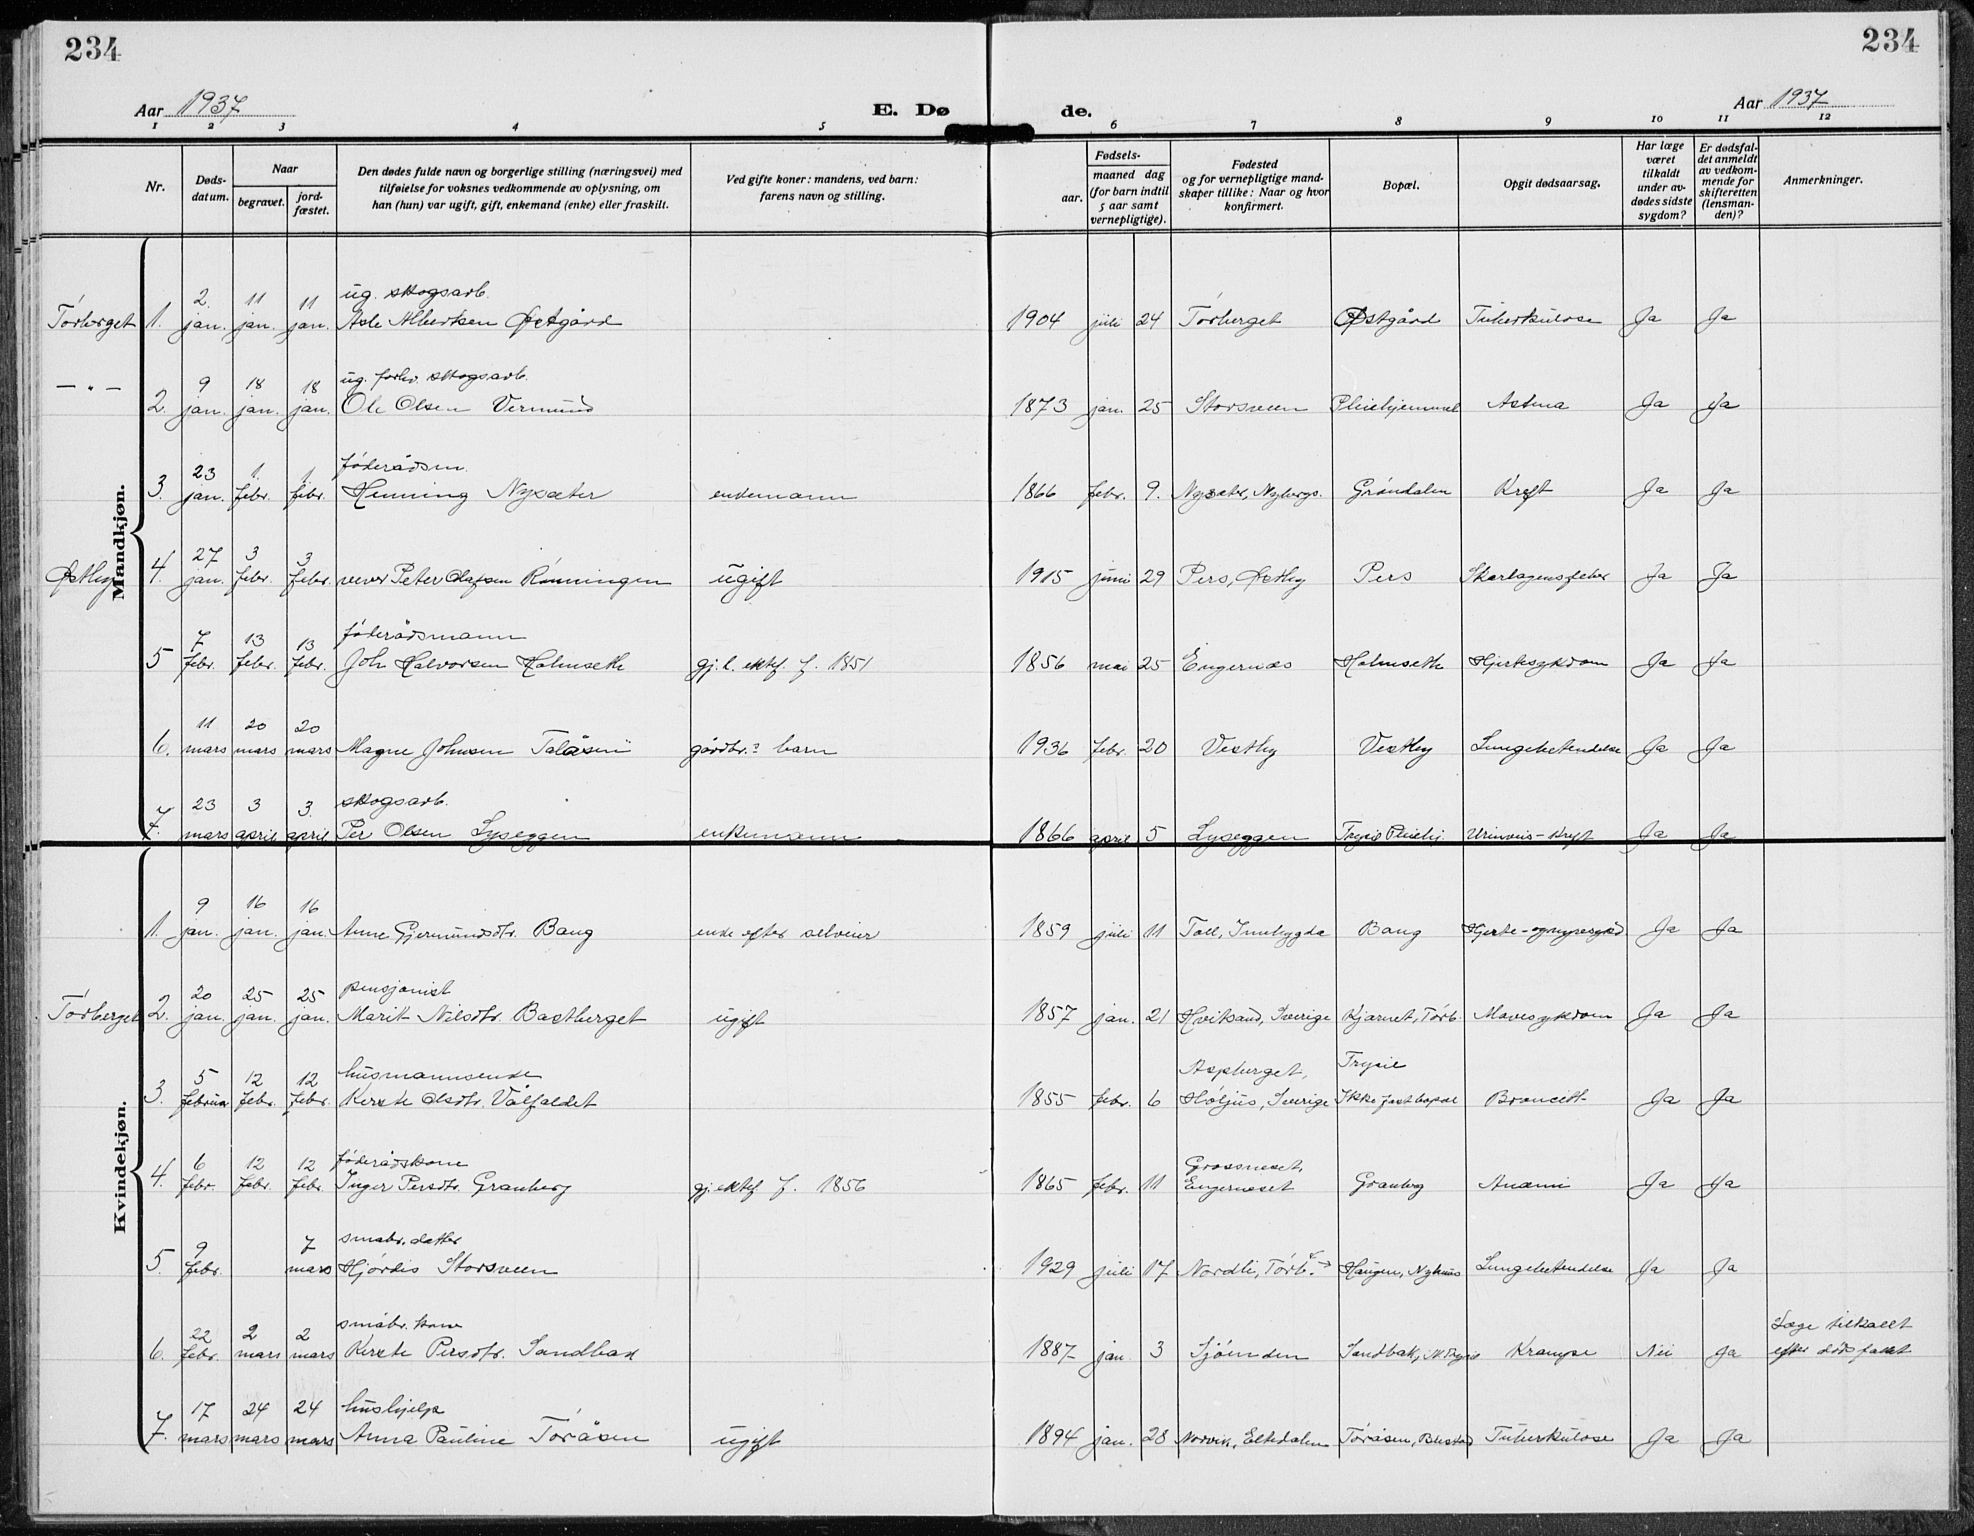 234
234
Aar 1937
E. Dø
de.
Aar 1937
1 2 3 4 5 6 7 8 9 10 11 12
Nr.
Døds-
datum.
Naar
begravet.
jord-
fæstet.
Den dødes fulde navn og borgerlige stilling (næringsvei) med
tilføielse for voksnes vedkommende av oplysning, om
han (hun) var ugift, gift, enkemand (enke) eller fraskilt.
Ved gifte koner: mandens, ved barn:
farens navn og stilling.
Fødsels-
aar.
maaned dag
(for barn indtil
5 aar samt
vernepligtige).
Fødested
og for vernepligtige mand-
skaper tillike: Naar og hvor
konfirmert.
Bopæl.
Opgit dødsaarsag.
Har læge
været
tilkaldt
under av-
dødes sidste
sygdom?
Er dødsfal-
det anmeldt
av vedkom-
mende for
skifteretten
(lensman-
den)?
Anmerkninger.
Mandkjøn.
2. 11 11 ug. skogsarb.
Tørberget 1. jan. jan. jan. Asle Albertsen Østgård 1904 juli 24 Tørberget Østgård Tuberkulose Ja Ja
— " — 9 18 18 ug. forhv. skogsarb.
2. jan. jan. jan. Ole Olsen Vermund 1873 jan. 25 Storsveen Pleiehjemmet Astma Ja Ja
23 1. 1. føderådsm.
3. jan. febr. febr. Henning Nysæter enkemann 1866 febr. 9. Nysæter, Nybergs. Grøndalen Kreft Ja Ja
27 3 3
Østby 4. jan. febr. febr. vever Peter Olafsen Rønningen ugift 1915 juni 29 Pers, Østby Pers Skarlagensfeber Ja Ja
7 13 13 føderådsmann
5 febr. febr. febr. Joh Halvorsen Holmseth gj. l. ektef. f. 1851 1856 mai 25 Engernes Holmseth Hjertesykdom Ja Ja
11 20 20
6. mars mars mars Magne Johnsen Talåsen gårdbr.s barn 1936 febr. 20 Vestby Vestby Lungebetendelse Ja Ja
23 3 3. skogsarb.
7. mars april april Per Olsen Lyseggen enkemann 1866 april 5 Lyseggen Trysil Pleiehj. Urinveis-kreft Ja Ja
Kvindekjøn.
9 16 16
1. jan. jan. jan. Anne Gjermundsdtr. Bang enke efter selveier 1859 juli 11 Foll, Innbygda Bang Hjerte- og nyresykd. Ja Ja
20 25 25 pensjonist
Tørberget 2. jan. jan. jan. Marit Nilsdtr. Bastberget ugift 1857 jan. 21 Hvitsand, Sverige Kjærnet, Tørb. Mavesykdom Ja Ja
5 12 12 husmannsenke Aspberget, Trysil
3. februar febr. febr. Kerste Olsdtr. Vålfaldet 1855 febr. 6 Høljus, Sverige Ikke fast bopæl Broncitt Ja Ja
6 12 12 føderådskone Grossneset,
4. febr. febr. febr. Inger Persdtr. Granberg gj. ektef. f. 1856 1865 febr. 11 Engerneset Granberg Anæmi Ja Ja
9 7 småbr. datter
5. febr. mars Hjørdis Storsveen 1929 juli 17 Nordli, Tørb. Haugen, Nyhus Lungebetendelse Ja Ja
22 2 2 småbr. kone Læge tilkallt
6. febr. mars mars Kerste Persdtr. Sandbak 1887 jan. 3 Sjøenden Sandbakk, Trysil Krampe Nei Ja efter dødsfallet
17 24 24 hushjelp
7. mars mars mars Anna Pauline Töråsen ugift 1894 jan. 28 Norvik, Eltdalen Töråsen, Tuberkulose Ja Ja